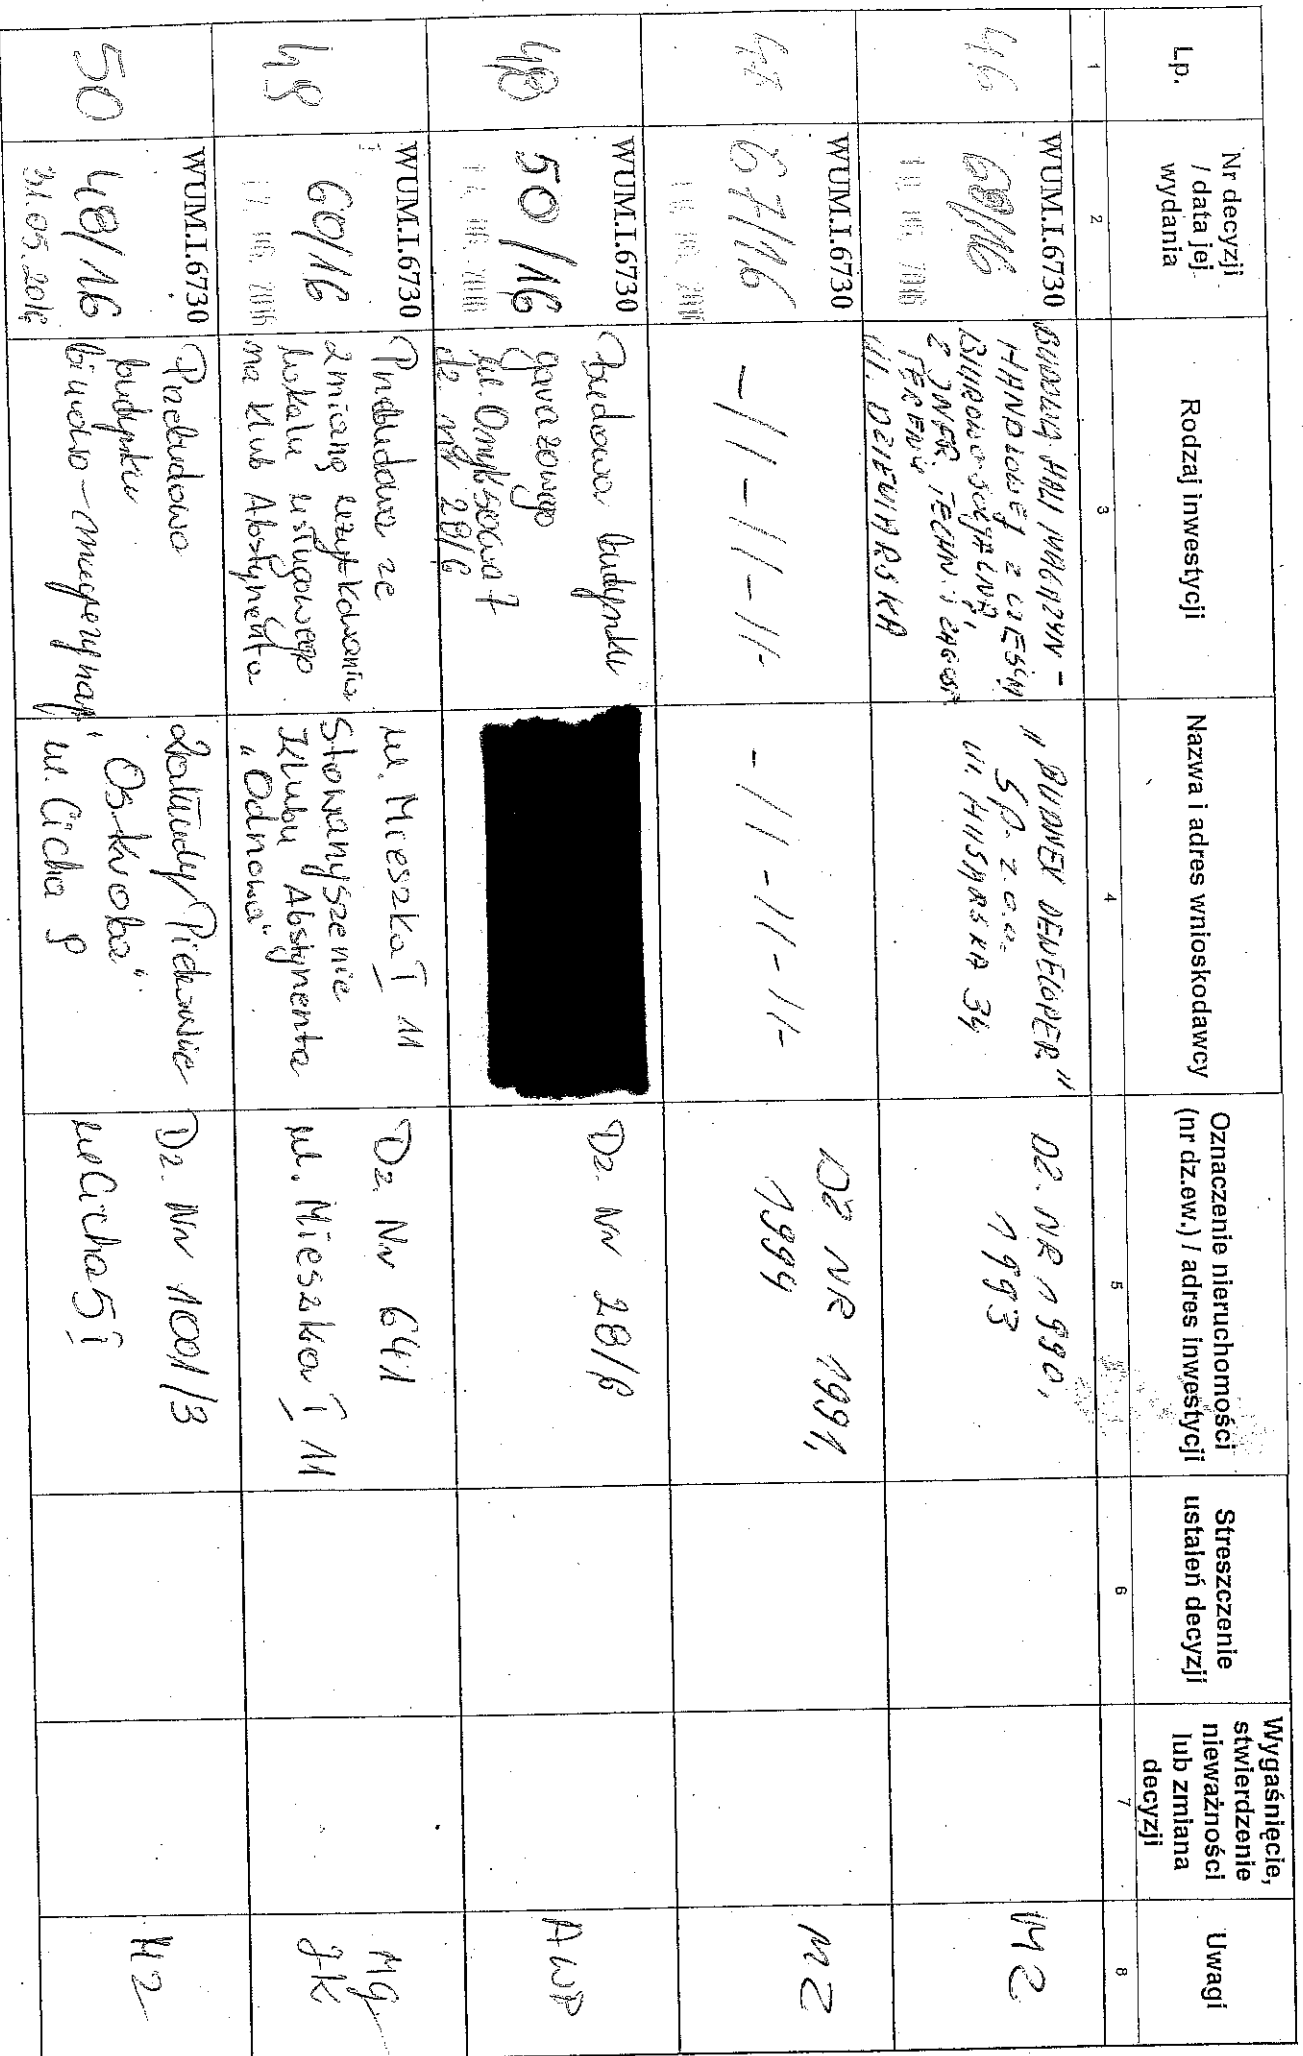 Lp.
Nr decyzji
/ data jej
wydania
Rodzaj inwestycji
Nazwa i adres wnioskodawcy
Oznaczenie nieruchomości
(nr dz.ew.) / adres inwestycji
Streszczenie
ustaleń decyzji
Wygaśnięcie,
stwierdzenie
nieważności
lub zmiana
decyzji
Uwagi
1
2
3
4
5
6
7
8
46
WUM.I.6730
68/16
BUDOWA HALI MAGAZYN -
HANDLOWEJ Z CZĘŚCIĄ
BIUROWO-SOCJALNĄ,
Z INFR. TECHN. i ZAGOSP.
TERENU
UL. DZIEWIARSKA
"BUDNEX DEWELOPER"
SP. Z O.O.
UL. HUSARSKA 34
DZ. NR 1990,
1993
MZ
47
WUM.I.6730
67/16
-//-//-//-
-//-//-//-
DZ NR 1991,
1994
MZ
48
WUM.I.6730
50/16
budowa budynku
garażowego
dz. nr 28/6
Dz. Nr 28/6
AWP
49
WUM.I.6730
60/16
Przebudowa ze
zmianą użytkowania
lokalu usługowego
na klub Abstynenta
ul. Mieszka I 11
Stowarzyszenie
Klubu Abstynenta
"Odnowa"
Dz. Nr 641
ul. Mieszka I 11
MG
JK
50
WUM.I.6730
48/16
31.05.2016
Przebudowa
budynku
biurowo-magazynow.
Zakłady Piekarskie
"Oskroba"
ul. Cicha 9
Dz. Nr 1001/3
ul. Cicha 5i
MZ